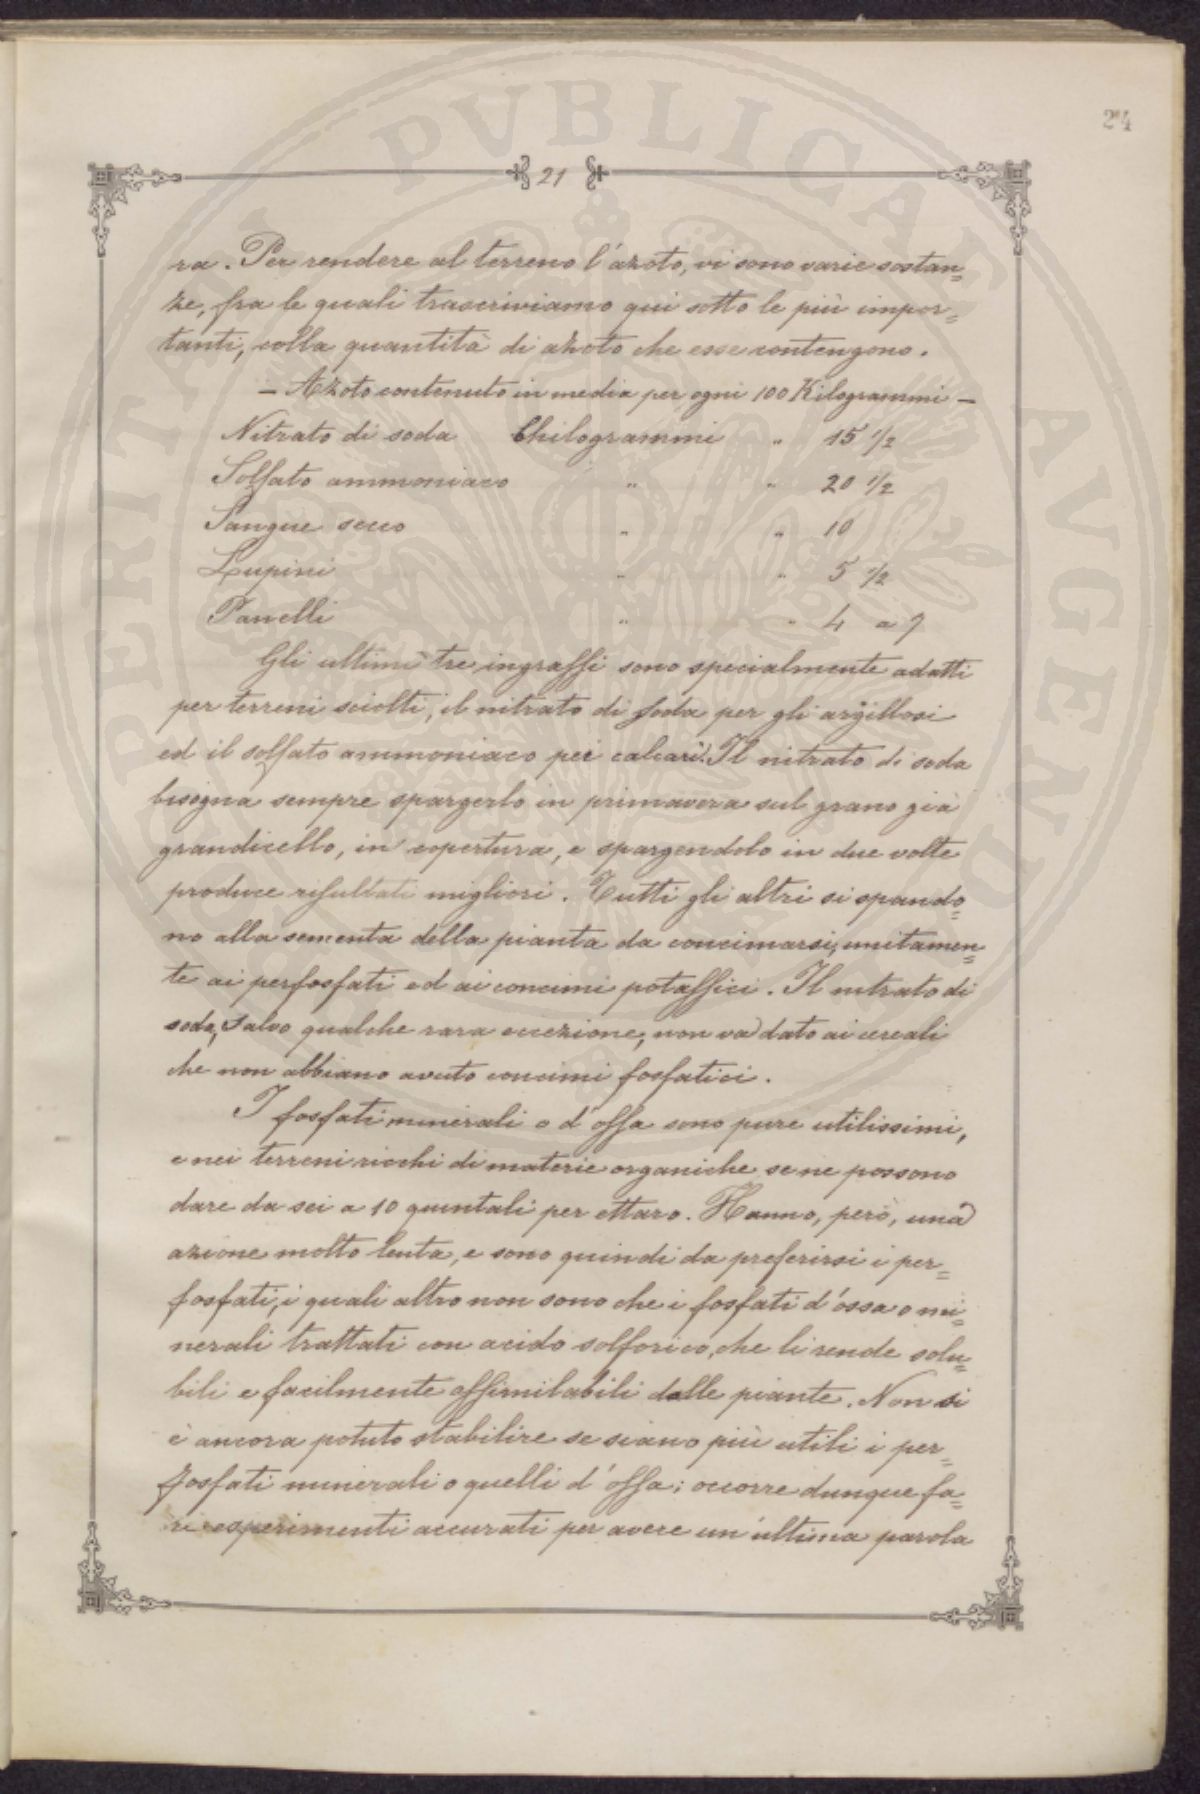 24
21
ra. Per rendere al terreno l'azoto, vi sono varie sostan=
ze, fra le quali trascriviamo qui sotto le più impor=
tanti, colla quantità di azoto che esse contengono.
— Azoto contenuto in media per ogni 100 Kilogrammi —
Nitrato di soda Chilogrammi " 15 1/2
Solfato ammoniaco " " 20 1/2
Sangue secco " " 10
Lupini " " 5 1/2
Panelli " " 4 a 7
Gli ultimi tre ingrassi sono specialmente adatti
per terreni sciolti, il nitrato di soda per gli argillosi
ed il solfato ammoniaco pei calcari. Il nitrato di soda
bisogna sempre spargerlo in primavera sul grano già
grandicello, in copertura, e spargendolo in due volte
produce risultati migliori. Tutti gli altri si spando=
no alla sementa della pianta da concimarsi, unitamen=
te ai perfosfati ed ai concimi potassici. Il nitrato di
soda, salvo qualche rara eccezione, non va dato ai cereali
che non abbiano avuto concimi fosfatici.
I fosfati minerali o d'ossa sono pure utilissimi,
e nei terreni ricchi di materie organiche se ne possono
dare da sei a 10 quintali per ettaro. Hanno, però, una
azione molto lenta, e sono quindi da preferirsi i per=
fosfati, i quali altro non sono che i fosfati d'ossa o mi=
nerali trattati con acido solforico, che li rende solu=
bili e facilmente assimilabili dalle piante. Non si
è ancora potuto stabilire se siano più utili i per=
fosfati minerali o quelli d'ossa; occorre dunque fa=
re esperimenti accurati per avere un'ultima parola
PERITAE PVBLICAE AVGENDO